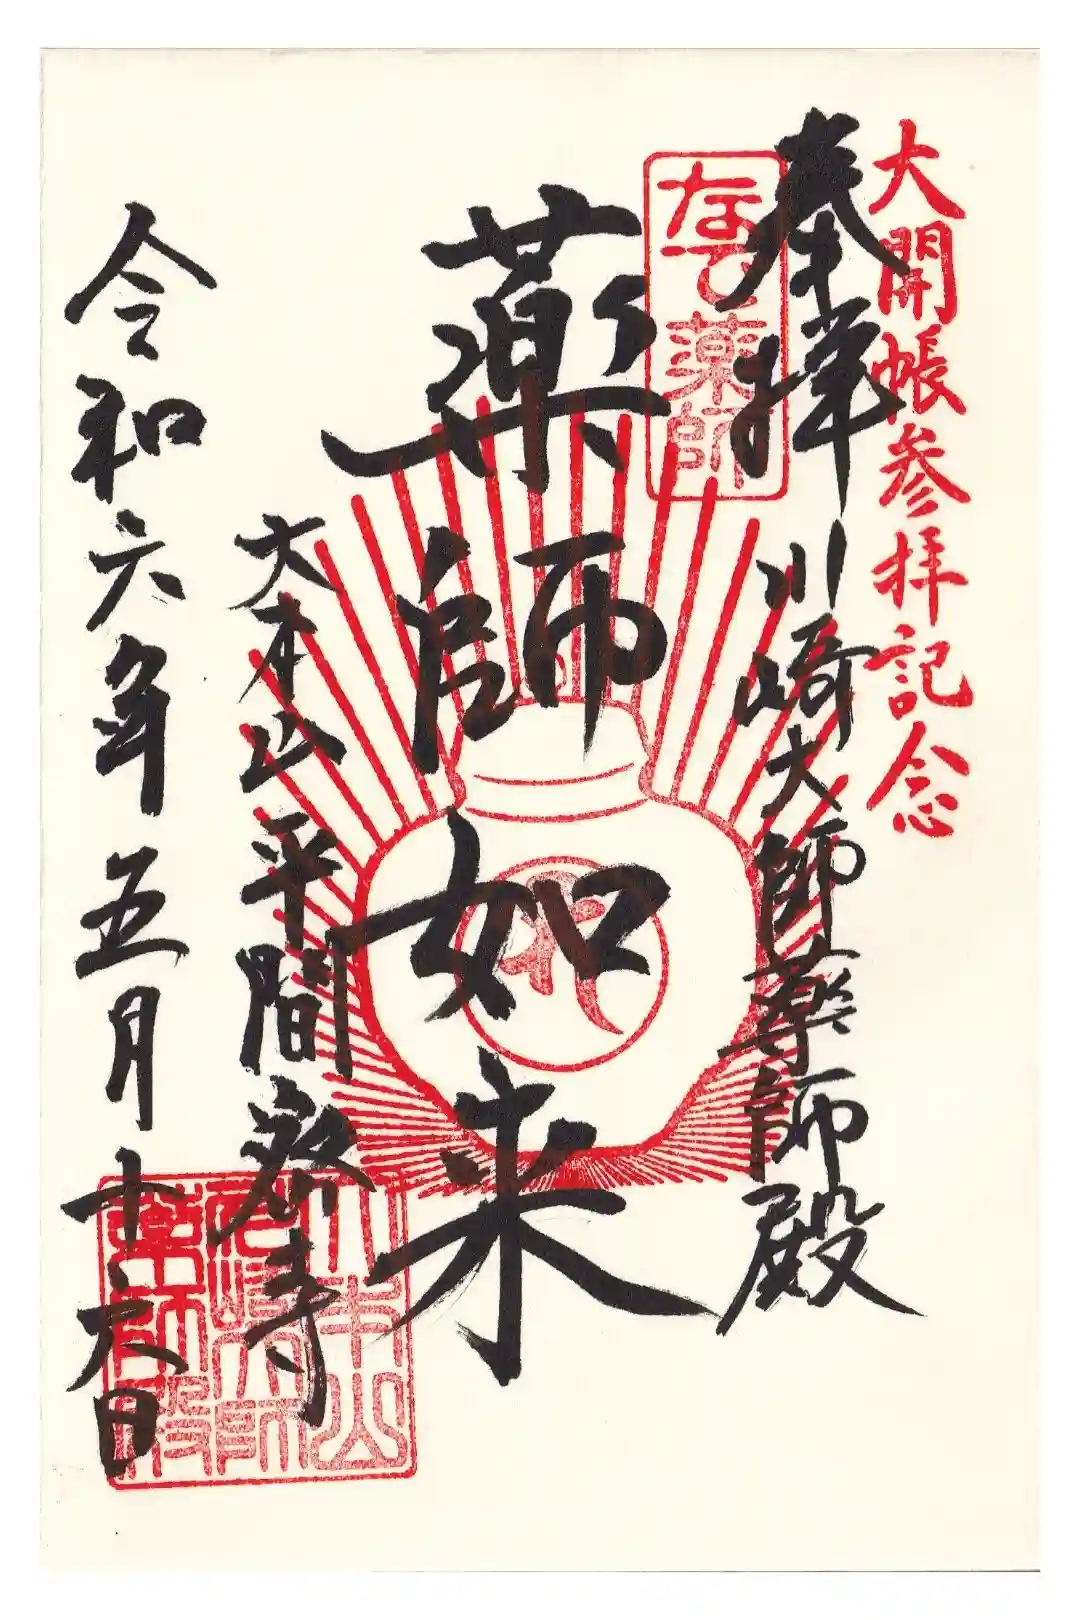 大開帳参拝記念
奉拝
川崎大師薬師殿
なで薬師
薬師如来
大本山平間寺
令和六年五月十六日
大本山
川崎大師
薬師殿